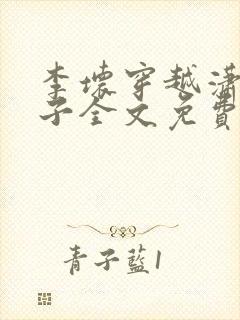 李壞穿越瀟
子全文免費
青子藍1